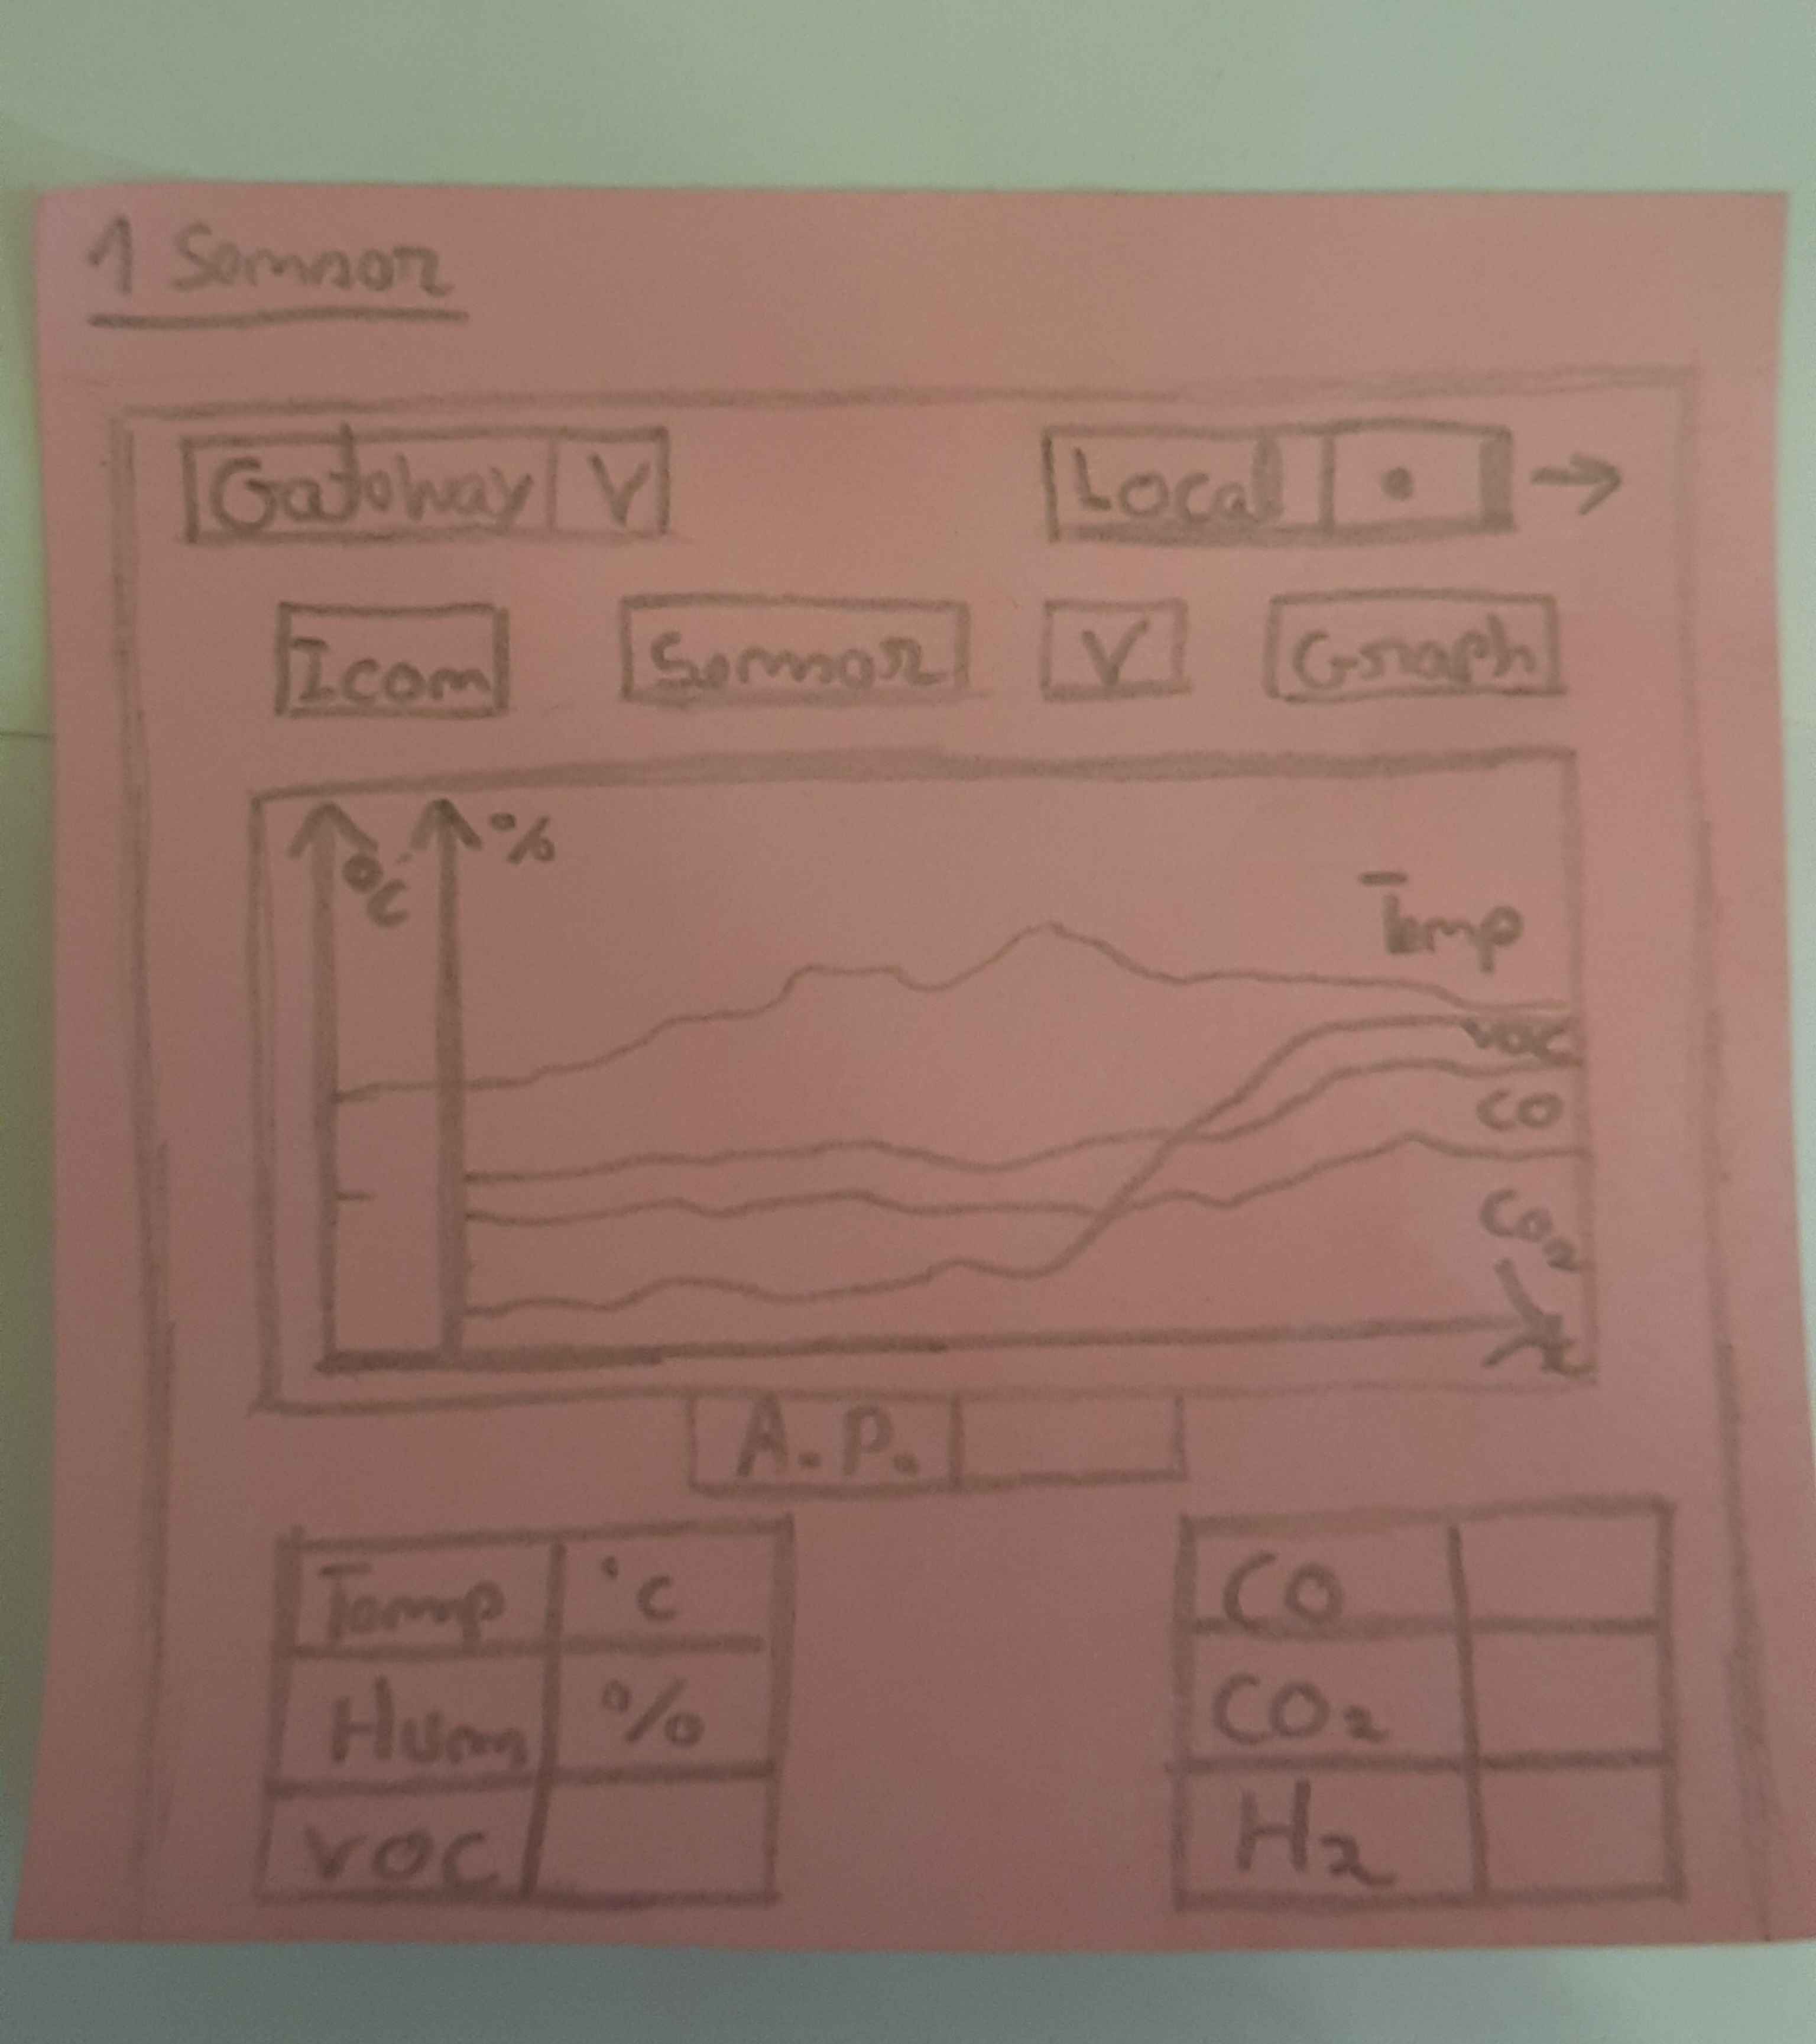 1 Sensor
Gateway V Local
Icon Sensor V Graph
°C %
Temp
VOC
CO
CO2
A.P.
Temp °C
Hum %
VOC
CO
CO2
H2